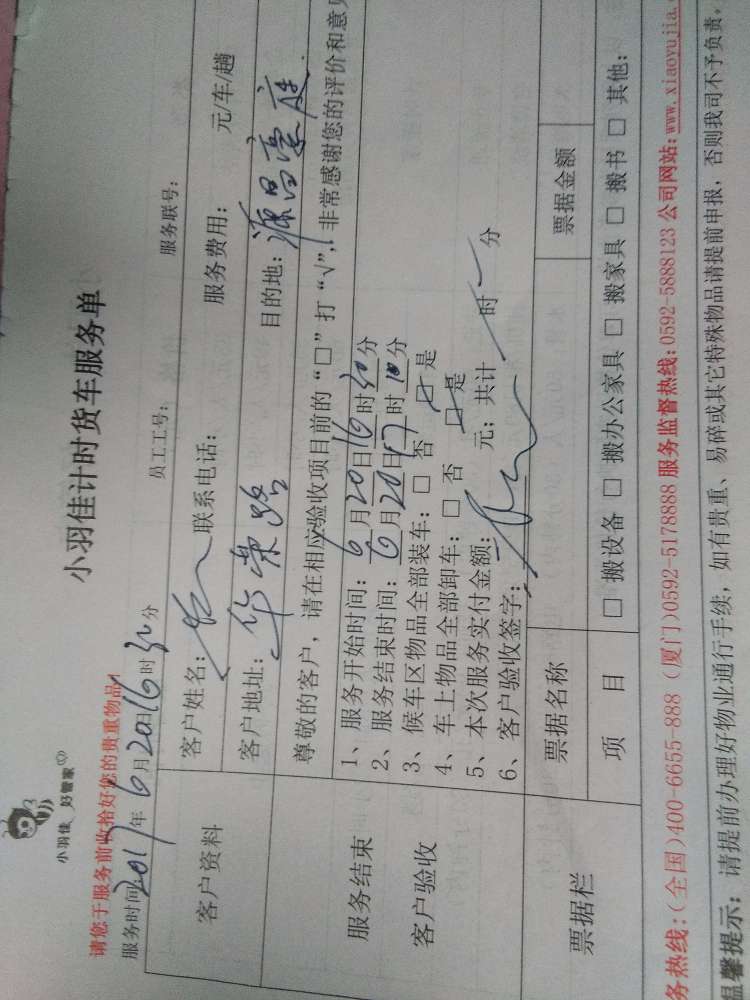 小羽佳 好管家
小羽佳计时货车服务单
请您于服务前收拾好您的贵重物品!
员工工号: 服务联号:
服务时间: 2017年6月20日16时30分
客户资料
客户姓名: 联系电话: 服务费用: 元/车/趟
客户地址: 华荣路 目的地: 源昌豪庭
服务结束
客户验收
尊敬的客户,请在相应验收项目前的“□”打“√”,非常感谢您的评价和意见
1、服务开始时间: 6月20日16时30分
2、服务结束时间: 6月20日17时10分
3、候车区物品全部装车: □ 否 □ 是
4、车上物品全部卸车: □ 否 □ 是
5、本次服务实付金额: 元; 共计 时 分
6、客户验收签字:
票据栏
票据名称 票据金额
项 目 □ 搬设备 □ 搬办公家具 □ 搬家具 □ 搬书 □ 其他:
务热线:(全国)400-6655-888 (厦门)0592-5178888 服务监督热线:0592-5888123 公司网站:www.xiaoyujia.
温馨提示: 请提前办理好物业通行手续,如有贵重、易碎或其它特殊物品请提前申报,否则我司不予负责,